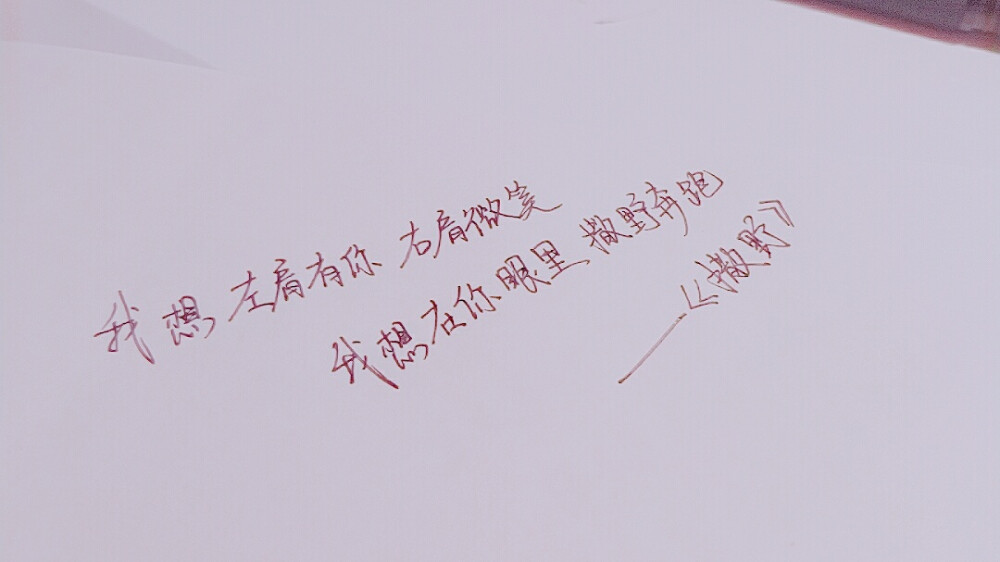 我想左肩有你 右肩微笑
我想在你眼里 撒野奔跑
——《撒野》